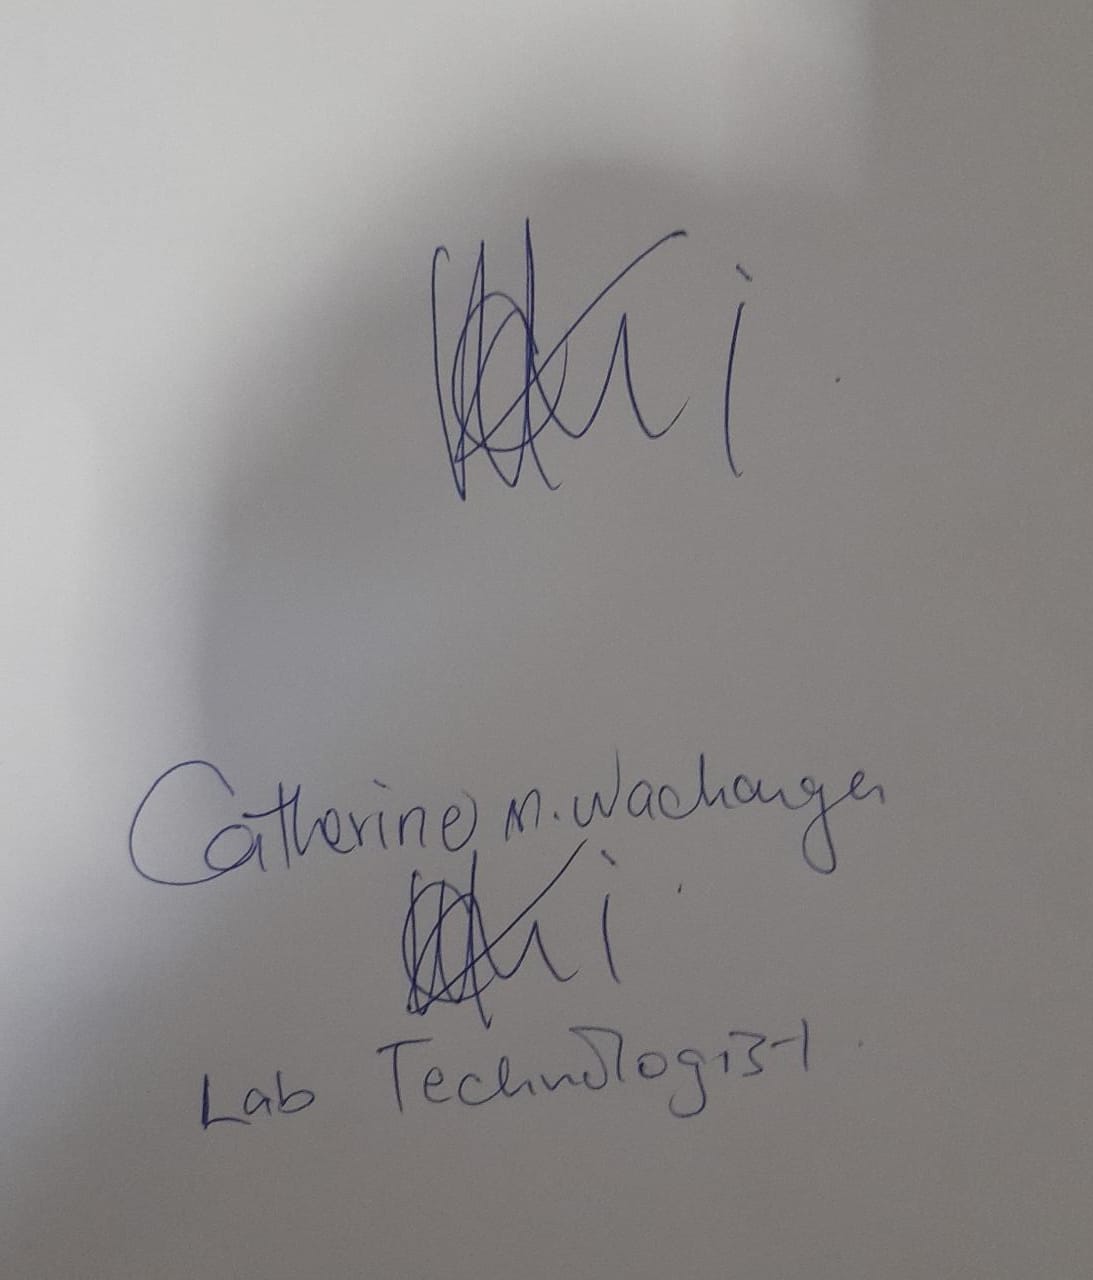 Catherine M. Wachanga
Lab Technologist